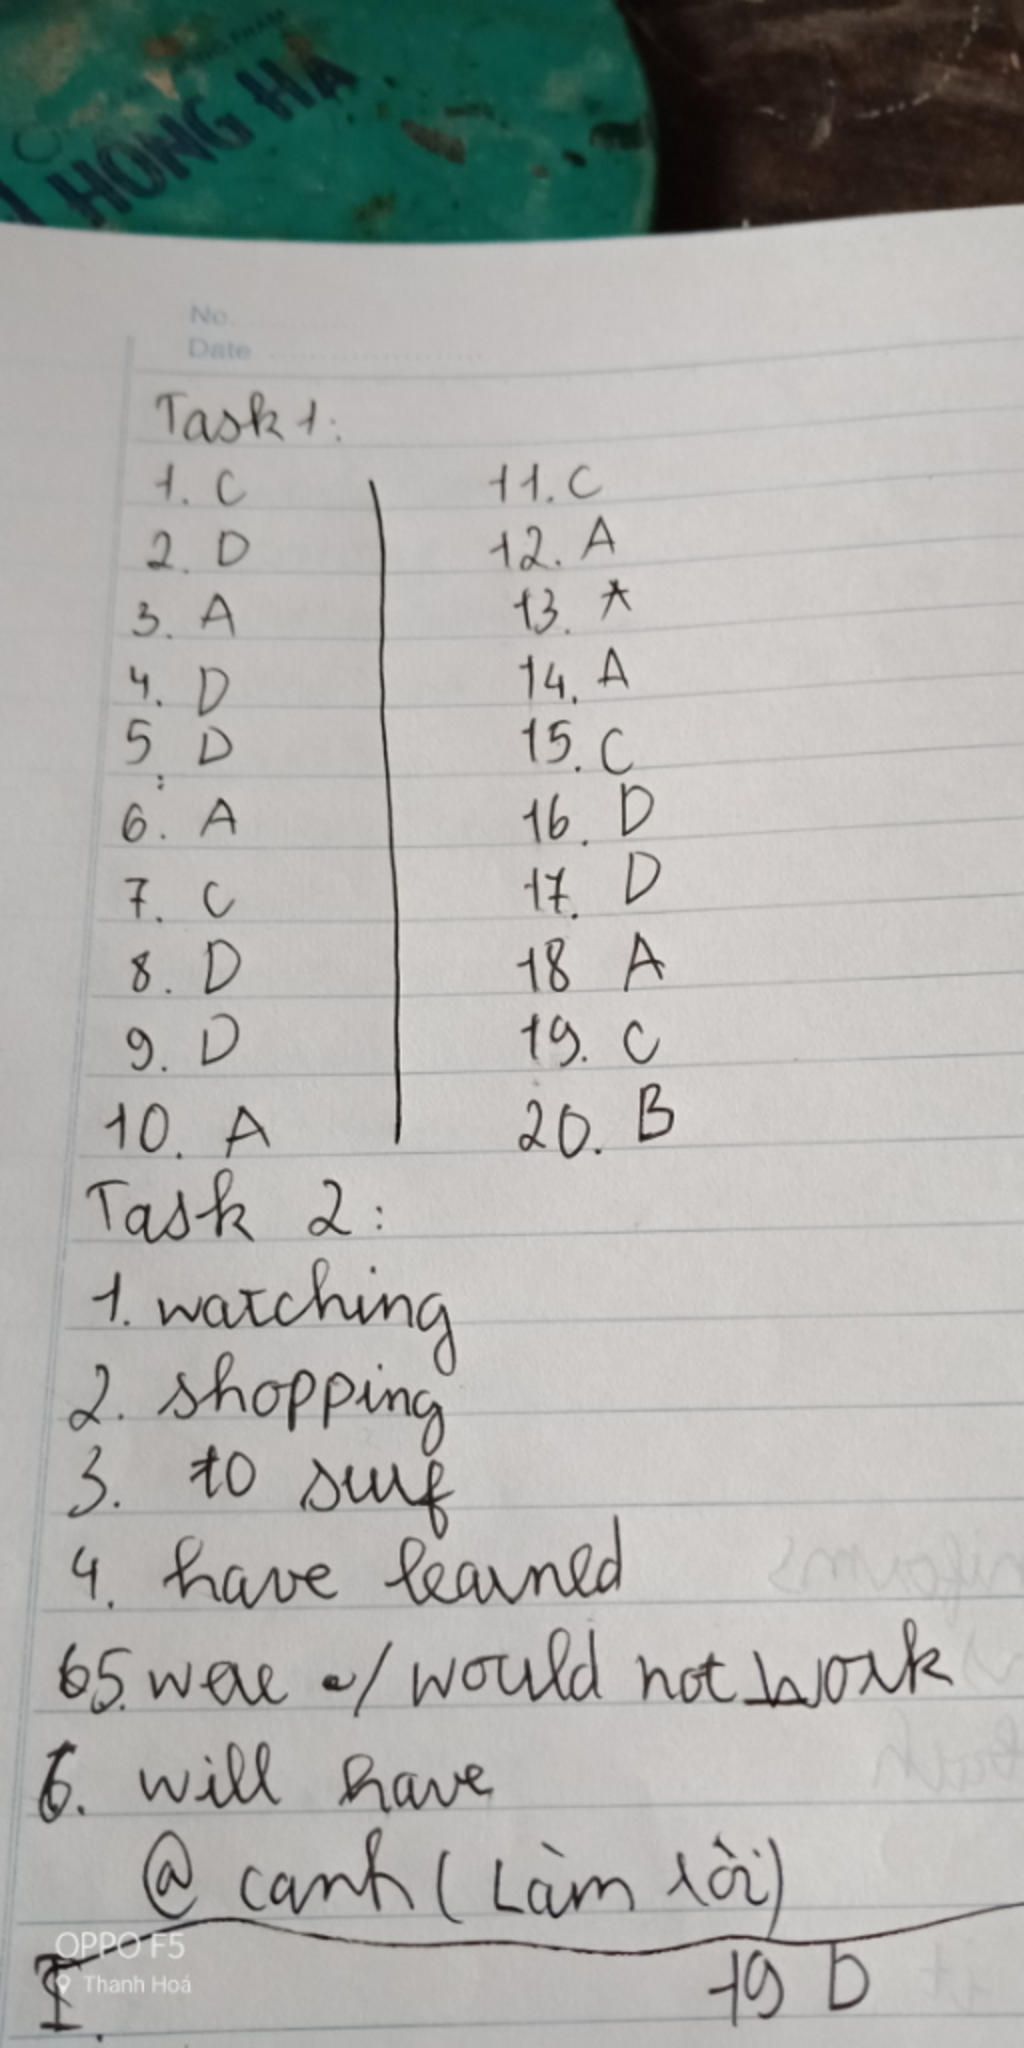 HONG HA
No.
Date
Task 1:
1. C
2. D
3. A
4. D
5. D
6. A
7. C
8. D
9. D
10. A
11. C
12. A
13. A
14. A
15. C
16. D
17. D
18 A
19. C
20. B
Task 2:
1. watching
2. shopping
3. to surf
4. have learned
65. were / would not work
6. will have
@ canh (Làm rồi)
I. 19 D
OPPO F5
Thanh Hoá